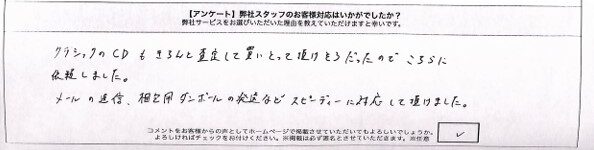 【アンケート】弊社スタッフのお客様対応はいかがでしたか？
弊社サービスをお選びいただいた理由を教えていただけますと幸いです。
クラシックのCDもきちんと査定して買いとって頂けそうだったのでこちらに
依頼しました。
メールの返信、梱包用ダンボールの発送などスピーディーに対応して頂けました。
コメントをお客様からの声としてホームページで掲載させていただいてもよろしいでしょうか。
よろしければチェックをお付けください。※掲載は必ず匿名とさせていただきます。※任意
✓